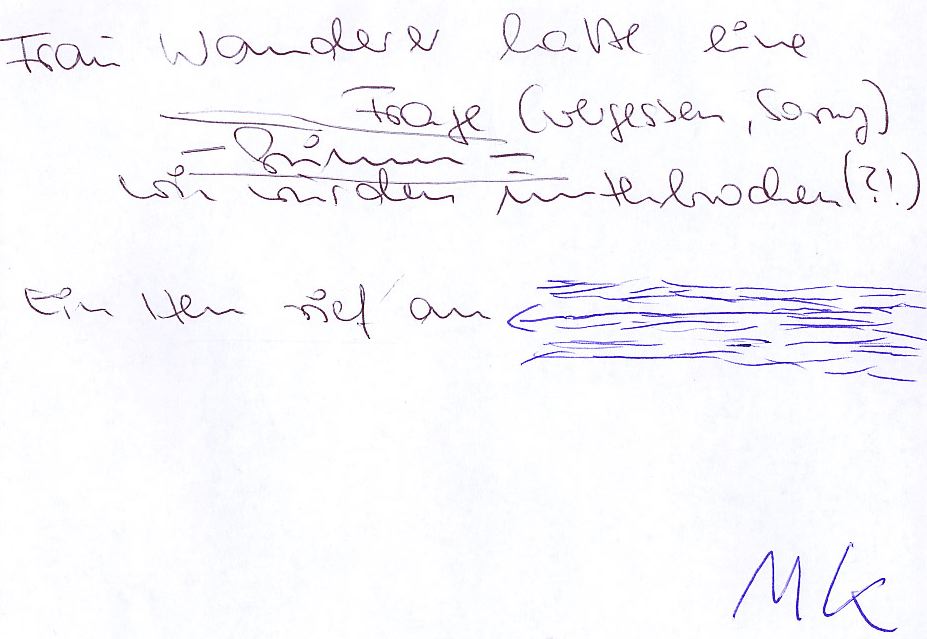 Frau Wanderer hatte eine
Frage (vergessen, Sorry)
wir wurden unterbrochen (?!)
Ein Herr rief an
MK